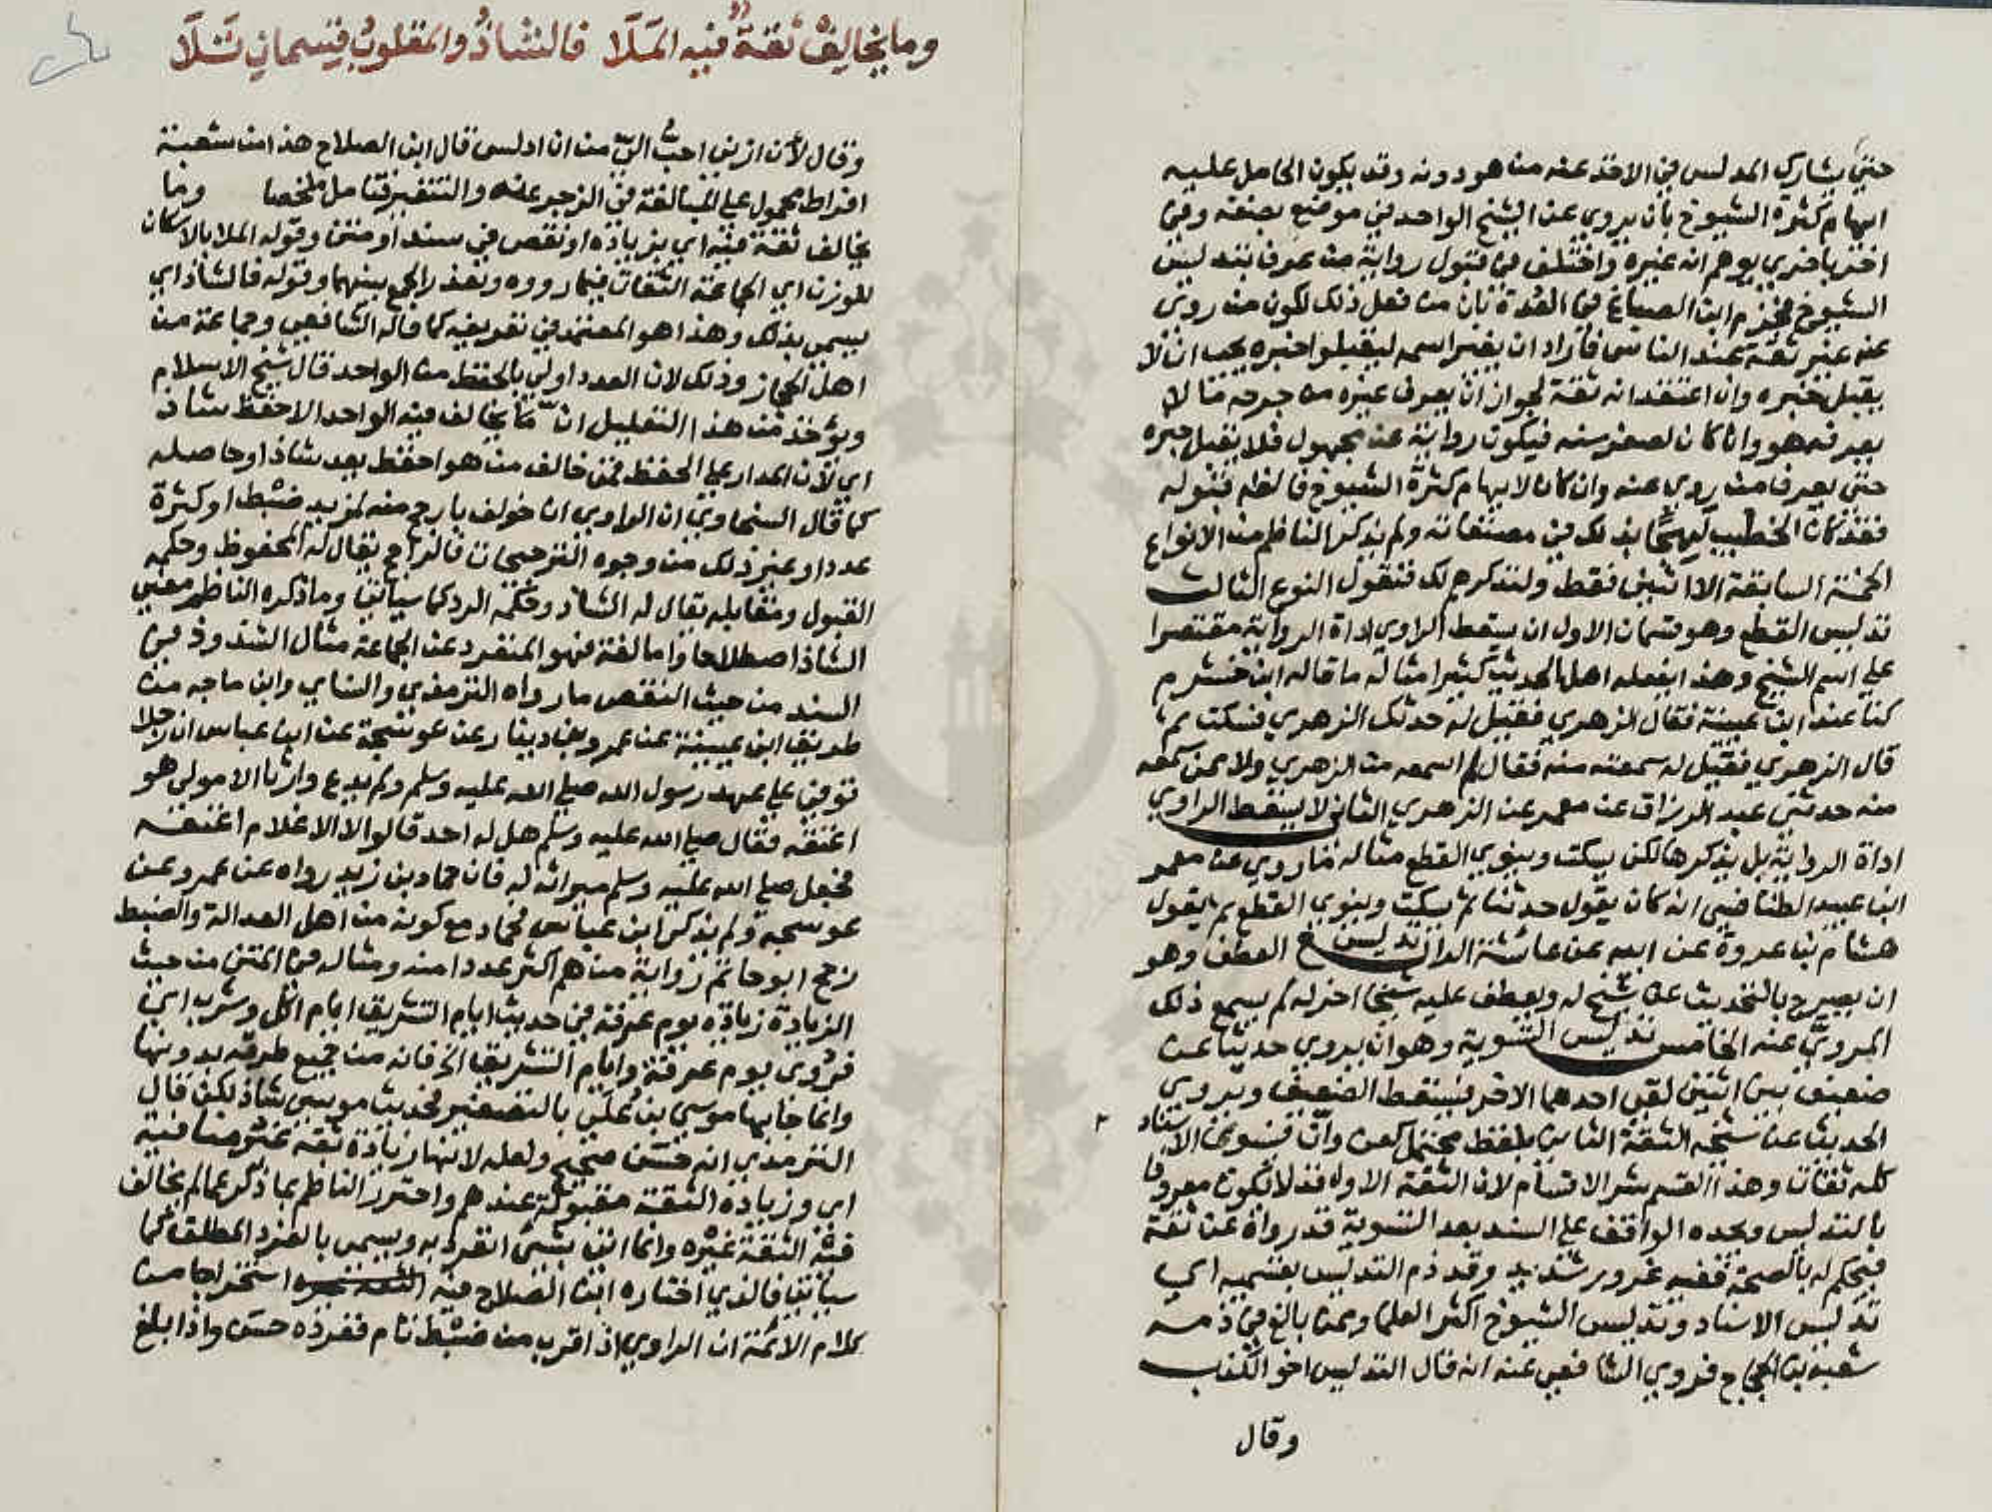 حتي يشارك المدلس في الاخذ عنه من هو دونه وقد يكون الحامل عليه
ايهام كثرة الشيوخ بان يروي عن الشيخ الواحد في موضع بصفة وفي
اخر باخري يوهم انه غيره واختلف في قبول رواية من عرف بتدليس
الشيوخ فجزم ابن الصباغ في العدة بان من فعل ذلك لكون من روي
عنه غير ثقة عند الناس فاراد ان يغير اسمه ليقبلوا خبره يجب ان لا
يقبل خبره وان اعتقد انه ثقة لجواز ان يعرف غيره من جرحه ما لا
يعرفه هو وان كان لصغر سنه فيكون رواية عن مجهول فلا يقبل خبره
حتي يعرف من روي عنه وان كان لايهام كثرة الشيوخ فالظاهر قبوله
فقد كان الخطيب لهجا بذلك في مصنفاته ولم يذكر الناظم من الانواع
الخمسة السابقة الا اثنين فقط ولنذكرهم لك فنقول النوع الثالث
تدليس القطع وهو قسمان الاول ان يسقط الراوي اداة الرواية مقتصرا
علي اسم الشيخ وهذا يفعله اهل الحديث كثيرا مثاله ما قاله ابن خشرم
كنا عند ابن عيينة فقال الزهري فقيل له حدثك الزهري فسكت ثم
قال الزهري فقيل له سمعته منه فقال لم اسمعه من الزهري ولا ممن سمعه
منه حدثني عبد الرزاق عن معمر عن الزهري الثاني لا يسقط الراوي
اداة الرواية بل يذكرها لكن يسكت وينوي القطع مثاله ما روي عن عمر
ابن عبيد الطنافسي انه كان يقول حدثنا ثم يسكت وينوي القطع ثم يقول
هشام بن عروة عن ابيه عن عائشة الرابع تدليس العطف وهو
ان يصرح بالتحديث عن شيخ له ويعطف عليه شيخا اخر له لم يسمع ذلك
المروي عنه الخامس تدليس التسوية وهو ان يروي حديثا عن
ضعيف بين اثنين لقي احدهما الاخر فيسقط الضعيف ويروي
الحديث عن شيخه الثقة الثاني بلفظ محتمل كعن وان فيستوي الاسناد
كله ثقات وهذا القسم شر الاقسام لان الثقة الاول قد لا يكون معروفا
بالتدليس ويجده الواقف علي السند بعد التسوية قد رواه عن ثقة
فيحكم له بالصحة ففيه غرور شديد وقد ذم التدليس بقسميه اي
تدليس الاسناد وتدليس الشيوخ اكثر العلما وممن بالغ في ذمه
شعبة بن الحجاج فروي الشافعي عنه انه قال التدليس اخو الكذب
وقال
وما يخالف ثقة فيه الملا فالشاذ والمقلوب قسمان تلا
وقال لأن ازني احب الي من ان ادلس قال ابن الصلاح هذا من شعبة
افراط محمول علي المبالغة في الزجر عنه والتنفير فتامل ملخصا وما
يخالف ثقة فيه اي بزيادة او نقص في سند او متن وقوله الملا بالاسكان
للوزن اي الجماعة الثقات فيما رووه وتعذر الجمع بينهما وقوله فالشاذ اي
يسمي بذلك وهذا هو المعتمد في تعريفه كما قاله الشافعي وجماعة من
اهل الحجاز وذلك لان العدد اولي بالحفظ من الواحد قال شيخ الاسلام
ويؤخذ من هذا التعليل ان ما يخالف فيه الواحد الاحفظ شاذ
اي لان المدار علي الحفظ فمن خالف من هو احفظ يعد شاذا وحاصله
كما قال السخاوي ان الراوي ان خولف بارجح منه لمزيد ضبط او كثرة
عدد او غير ذلك من وجوه الترجيحات فالراجح يقال له المحفوظ وحكمه
القبول ومقابله يقال له الشاذ وحكمه الرد كما سياتي وما ذكره الناظم معني
الشاذ اصطلاحا واما لغة فهو المنفرد عن الجماعة مثال الشذوذ في
السند من حيث النقص ما رواه الترمذي والنساي وابن ماجه من
طريق ابن عيينة عن عمرو بن دينار عن عوسجة عن ابن عباس ان رجلا
توفي علي عهد رسول الله صلي الله عليه وسلم ولم يدع وارثا الا مولي هو
اعتقه فقال صلي الله عليه وسلم هل له احد قالوا لا الا غلام اعتقه
فجعل صلي الله عليه وسلم ميراثه له فان حماد بن زيد رواه عن عمرو عن
عوسجة ولم يذكر ابن عباس فحماد مع كونه من اهل العدالة والضبط
رجح ابو حاتم رواية من هم اكثر عددا منه ومثاله في المتن من حيث
الزيادة زيادة يوم عرفة في حديث ايام التشريق ايام اكل وشرب اي
فروي يوم عرفة وايام التشريق الخ فانه من جميع طرقه بدونها
وانما جا بها موسي بن علي بالتصغير فحديث موسي شاذ لكن قال
الترمذي انه حسن صحيح ولعله لانها زيادة ثقة غير منافية
اي وزيادة الثقة مقبولة عندهم واحترز الناظم بما ذكر عما لم يخالف
فيه الثقة غيره وانما اتي بشئ انفرد به ويسمي بالفرد المطلق كما
سياتي فالذي اختاره ابن الصلاح فيه استخراجا من
كلام الائمة ان الراوي اذا قرب من ضبط تام ففرده حسن واذا بلغ